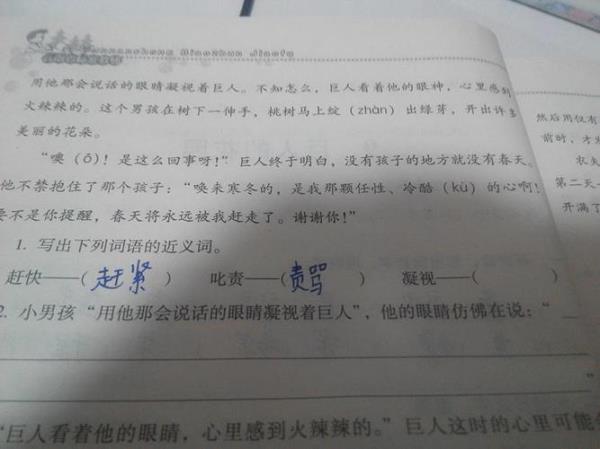 用他那会说话的眼睛凝视着巨人。不知怎么，巨人看着他的眼神，心里感到
火辣辣的。这个男孩在树下一伸手，桃树马上绽（zhàn）出绿芽，开出许多
美丽的花朵。
“噢（ō）！是这么回事呀！”巨人终于明白，没有孩子的地方就没有春天。
他不禁抱住了那个孩子：“唤来寒冬的，是我那颗任性、冷酷（kù）的心啊！
要不是你提醒，春天将永远被我赶走了。谢谢你！”
1. 写出下列词语的近义词。
赶快——（赶紧）　叱责——（责骂）　凝视——（　　）
2. 小男孩“用他那会说话的眼睛凝视着巨人”，他的眼睛仿佛在说：“
”
“巨人看着他的眼睛，心里感到火辣辣的。”巨人这时的心里可能会
然后用仅有
前时，才发
农夫
第二天一
开满了